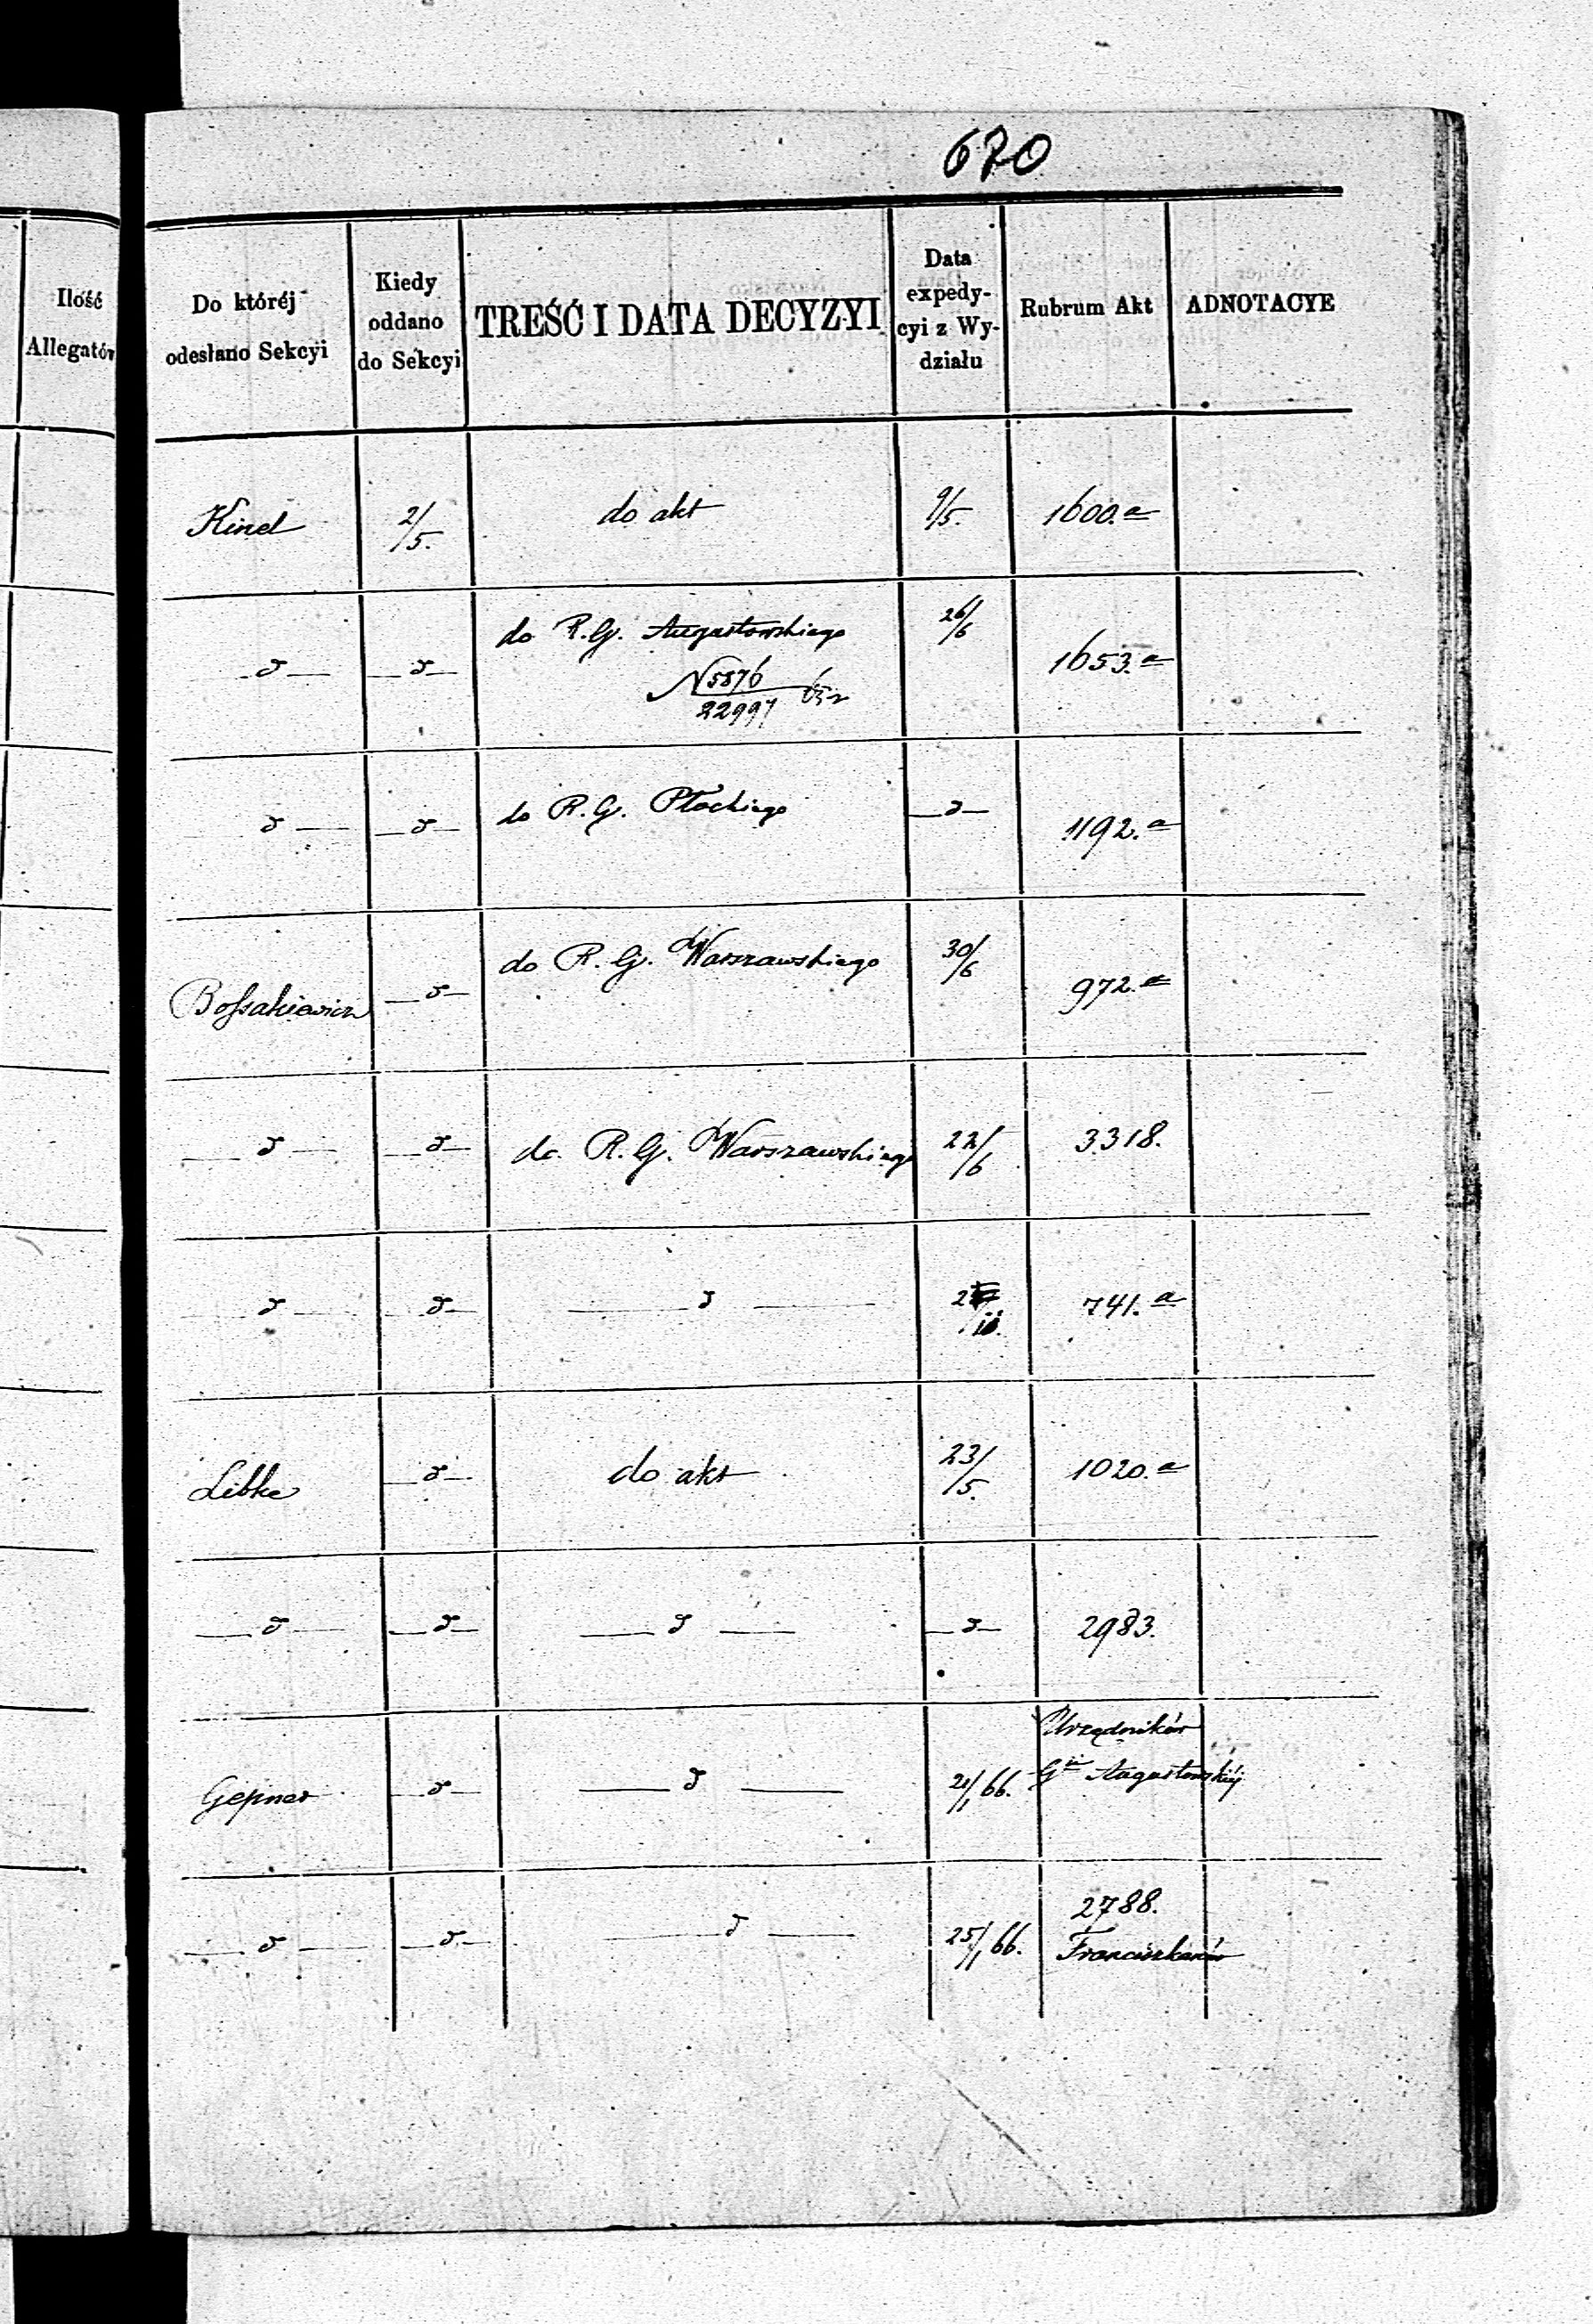 670
Ilość
Allegatów
Do któréj
odesłano Sekcyi
Kiedy
oddano
do Sekcyi
TREŚĆ I DATA DECYZYI
Data
expedy-
cyi z Wy-
działu
Rubrum Akt
ADNOTACYE
Kinel 2/5. do akt 9/5. 1600.a
— d — — d — do R. G. Augustowskiego 26/6 1653.a
N 5876/22997
— d — — d — do R. G. Płockiego — d — 1192.a
Bossakiewicz — d — do R. G. Warszawskiego 30/6 972.a
— d — — d — do R. G. Warszawskiego 22/6 3318.
— d — — d — — d — 741.a
Libke — d — do akt 23/5. 1020.a
— d — — d — — d — — d — 2983.
Urzędników
Gepner — d — — d — 20/1 66. Gii Augustowskiéj
2788.
— d — — d — — d — 25/1 66. Franciszkanów